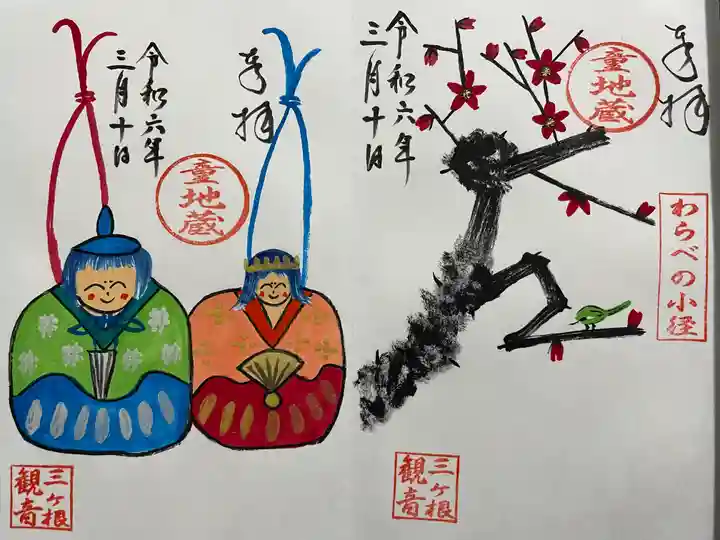 奉拝
童地蔵
わらべの小径
令和六年
三月十日
三ヶ根
観音
奉拝
童地蔵
令和六年
三月十日
三ヶ根
観音